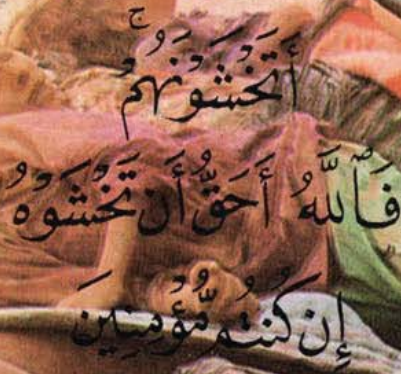 أَتَخْشَوْنَهُمْ ۚ
فَٱللَّهُ أَحَقُّ أَن تَخْشَوْهُ
إِن كُنتُم مُّؤْمِنِينَ